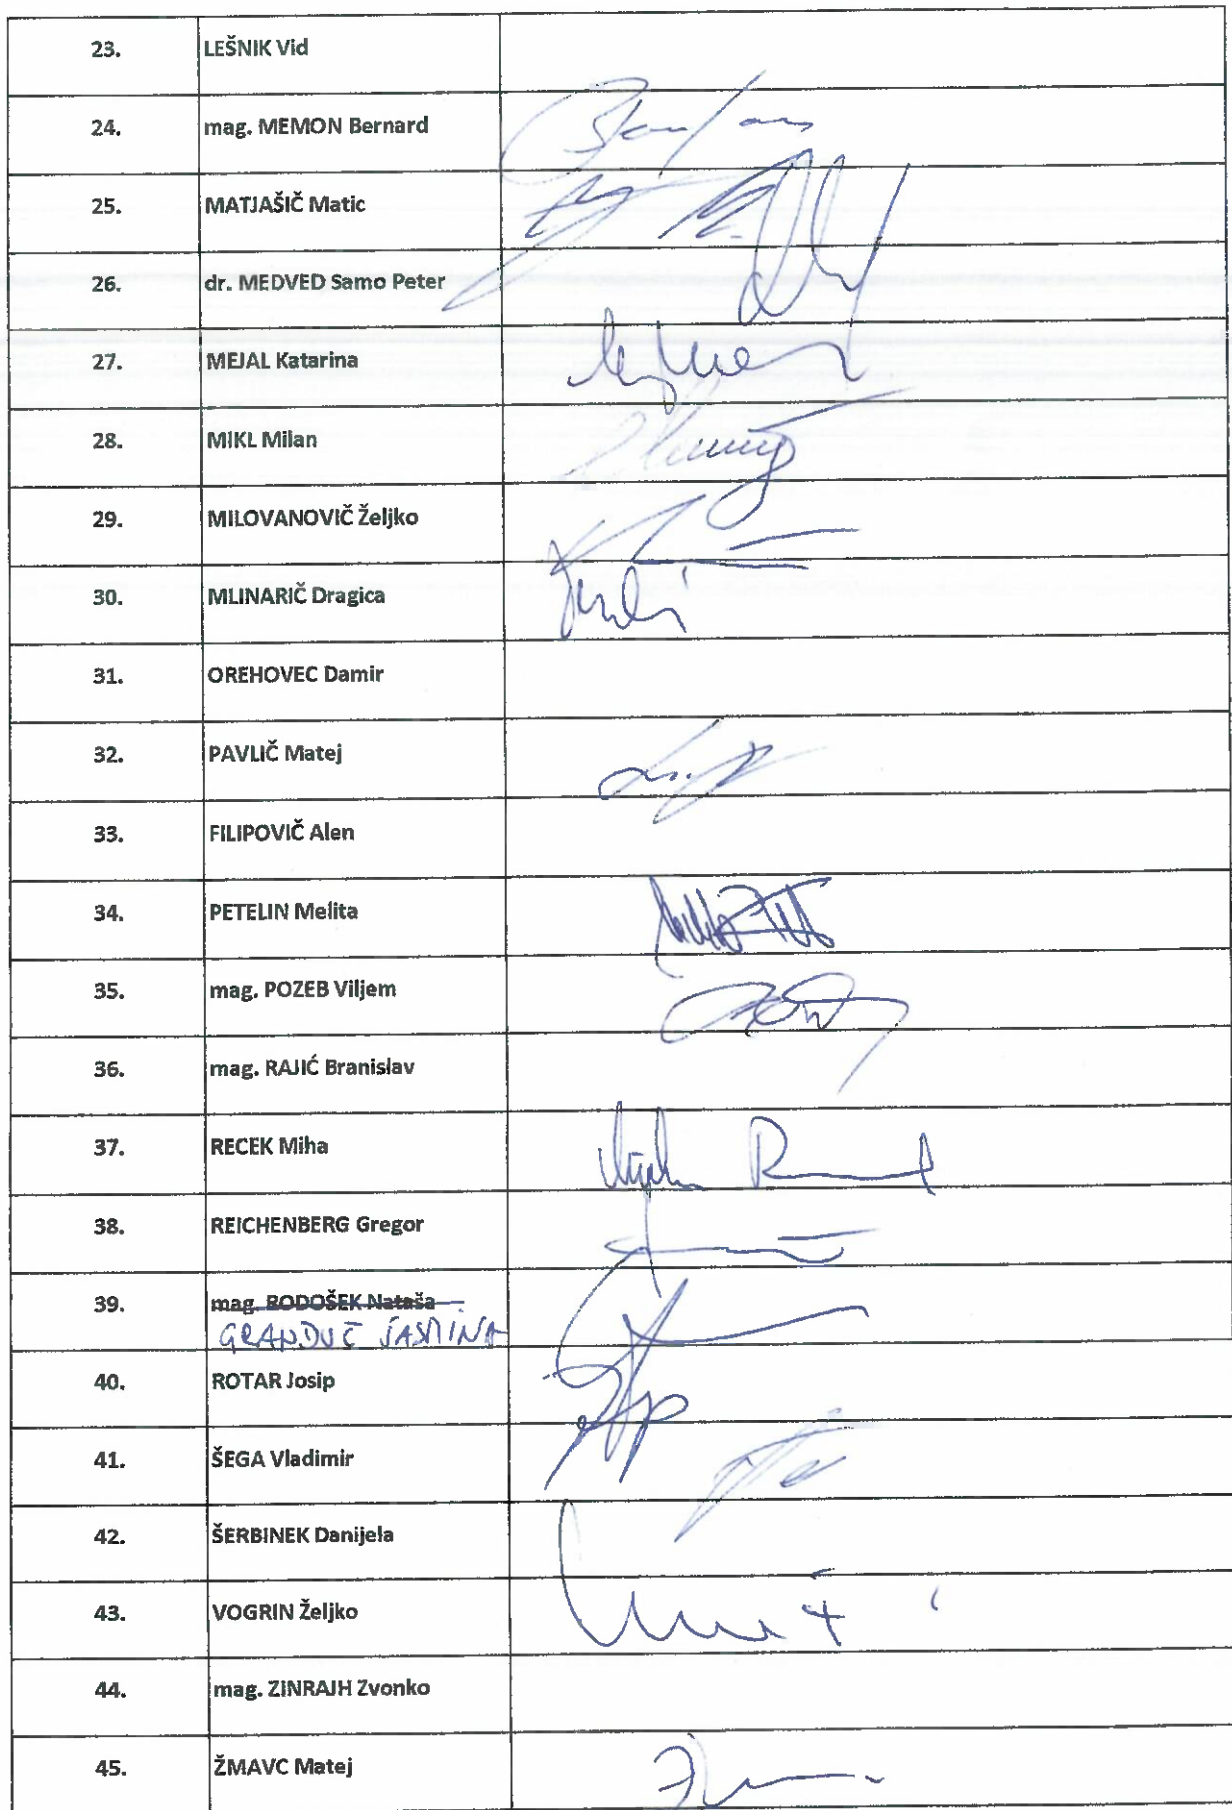 23. LEŠNIK Vid
24. mag. MEMON Bernard
25. MATJAŠIČ Matic
26. dr. MEDVED Samo Peter
27. MEJAL Katarina
28. MIKL Milan
29. MILOVANOVIČ Željko
30. MLINARIČ Dragica
31. OREHOVEC Damir
32. PAVLIČ Matej
33. FILIPOVIČ Alen
34. PETELIN Melita
35. mag. POZEB Viljem
36. mag. RAJIĆ Branislav
37. RECEK Miha
38. REICHENBERG Gregor
39. mag. RODOŠEK Nataša
JASMINA
40. ROTAR Josip
41. ŠEGA Vladimir
42. ŠERBINEK Danijela
43. VOGRIN Željko
44. mag. ZINRAJH Zvonko
45. ŽMAVC Matej